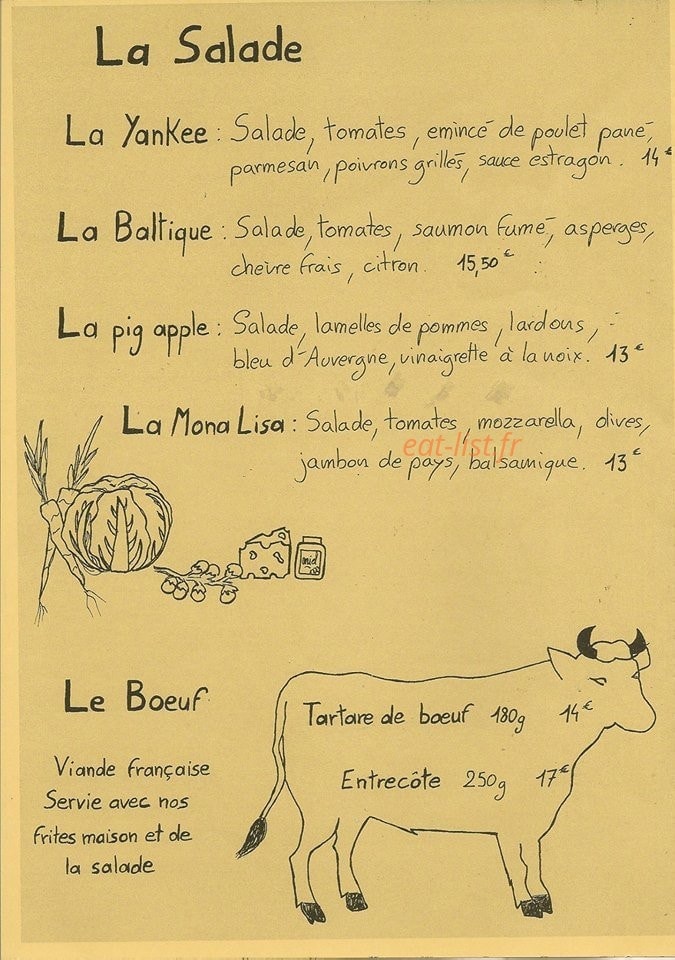 La Salade
La Yankee : Salade, tomates, emincé de poulet pané,
parmesan, poivrons grillés, sauce estragon. 14€
La Baltique : Salade, tomates, saumon fumé, asperges,
chèvre frais, citron. 15,50€
La pig apple : Salade, lamelles de pommes, lardons,
bleu d'Auvergne, vinaigrette à la noix. 13€
La Mona Lisa : Salade, tomates, mozzarella, olives,
eat-list.fr
jambon de pays, balsamique. 13€
miel
Le Boeuf
Tartare de boeuf 180g 14€
Entrecôte 250g 17€
Viande française
Servie avec nos
frites maison et de
la salade